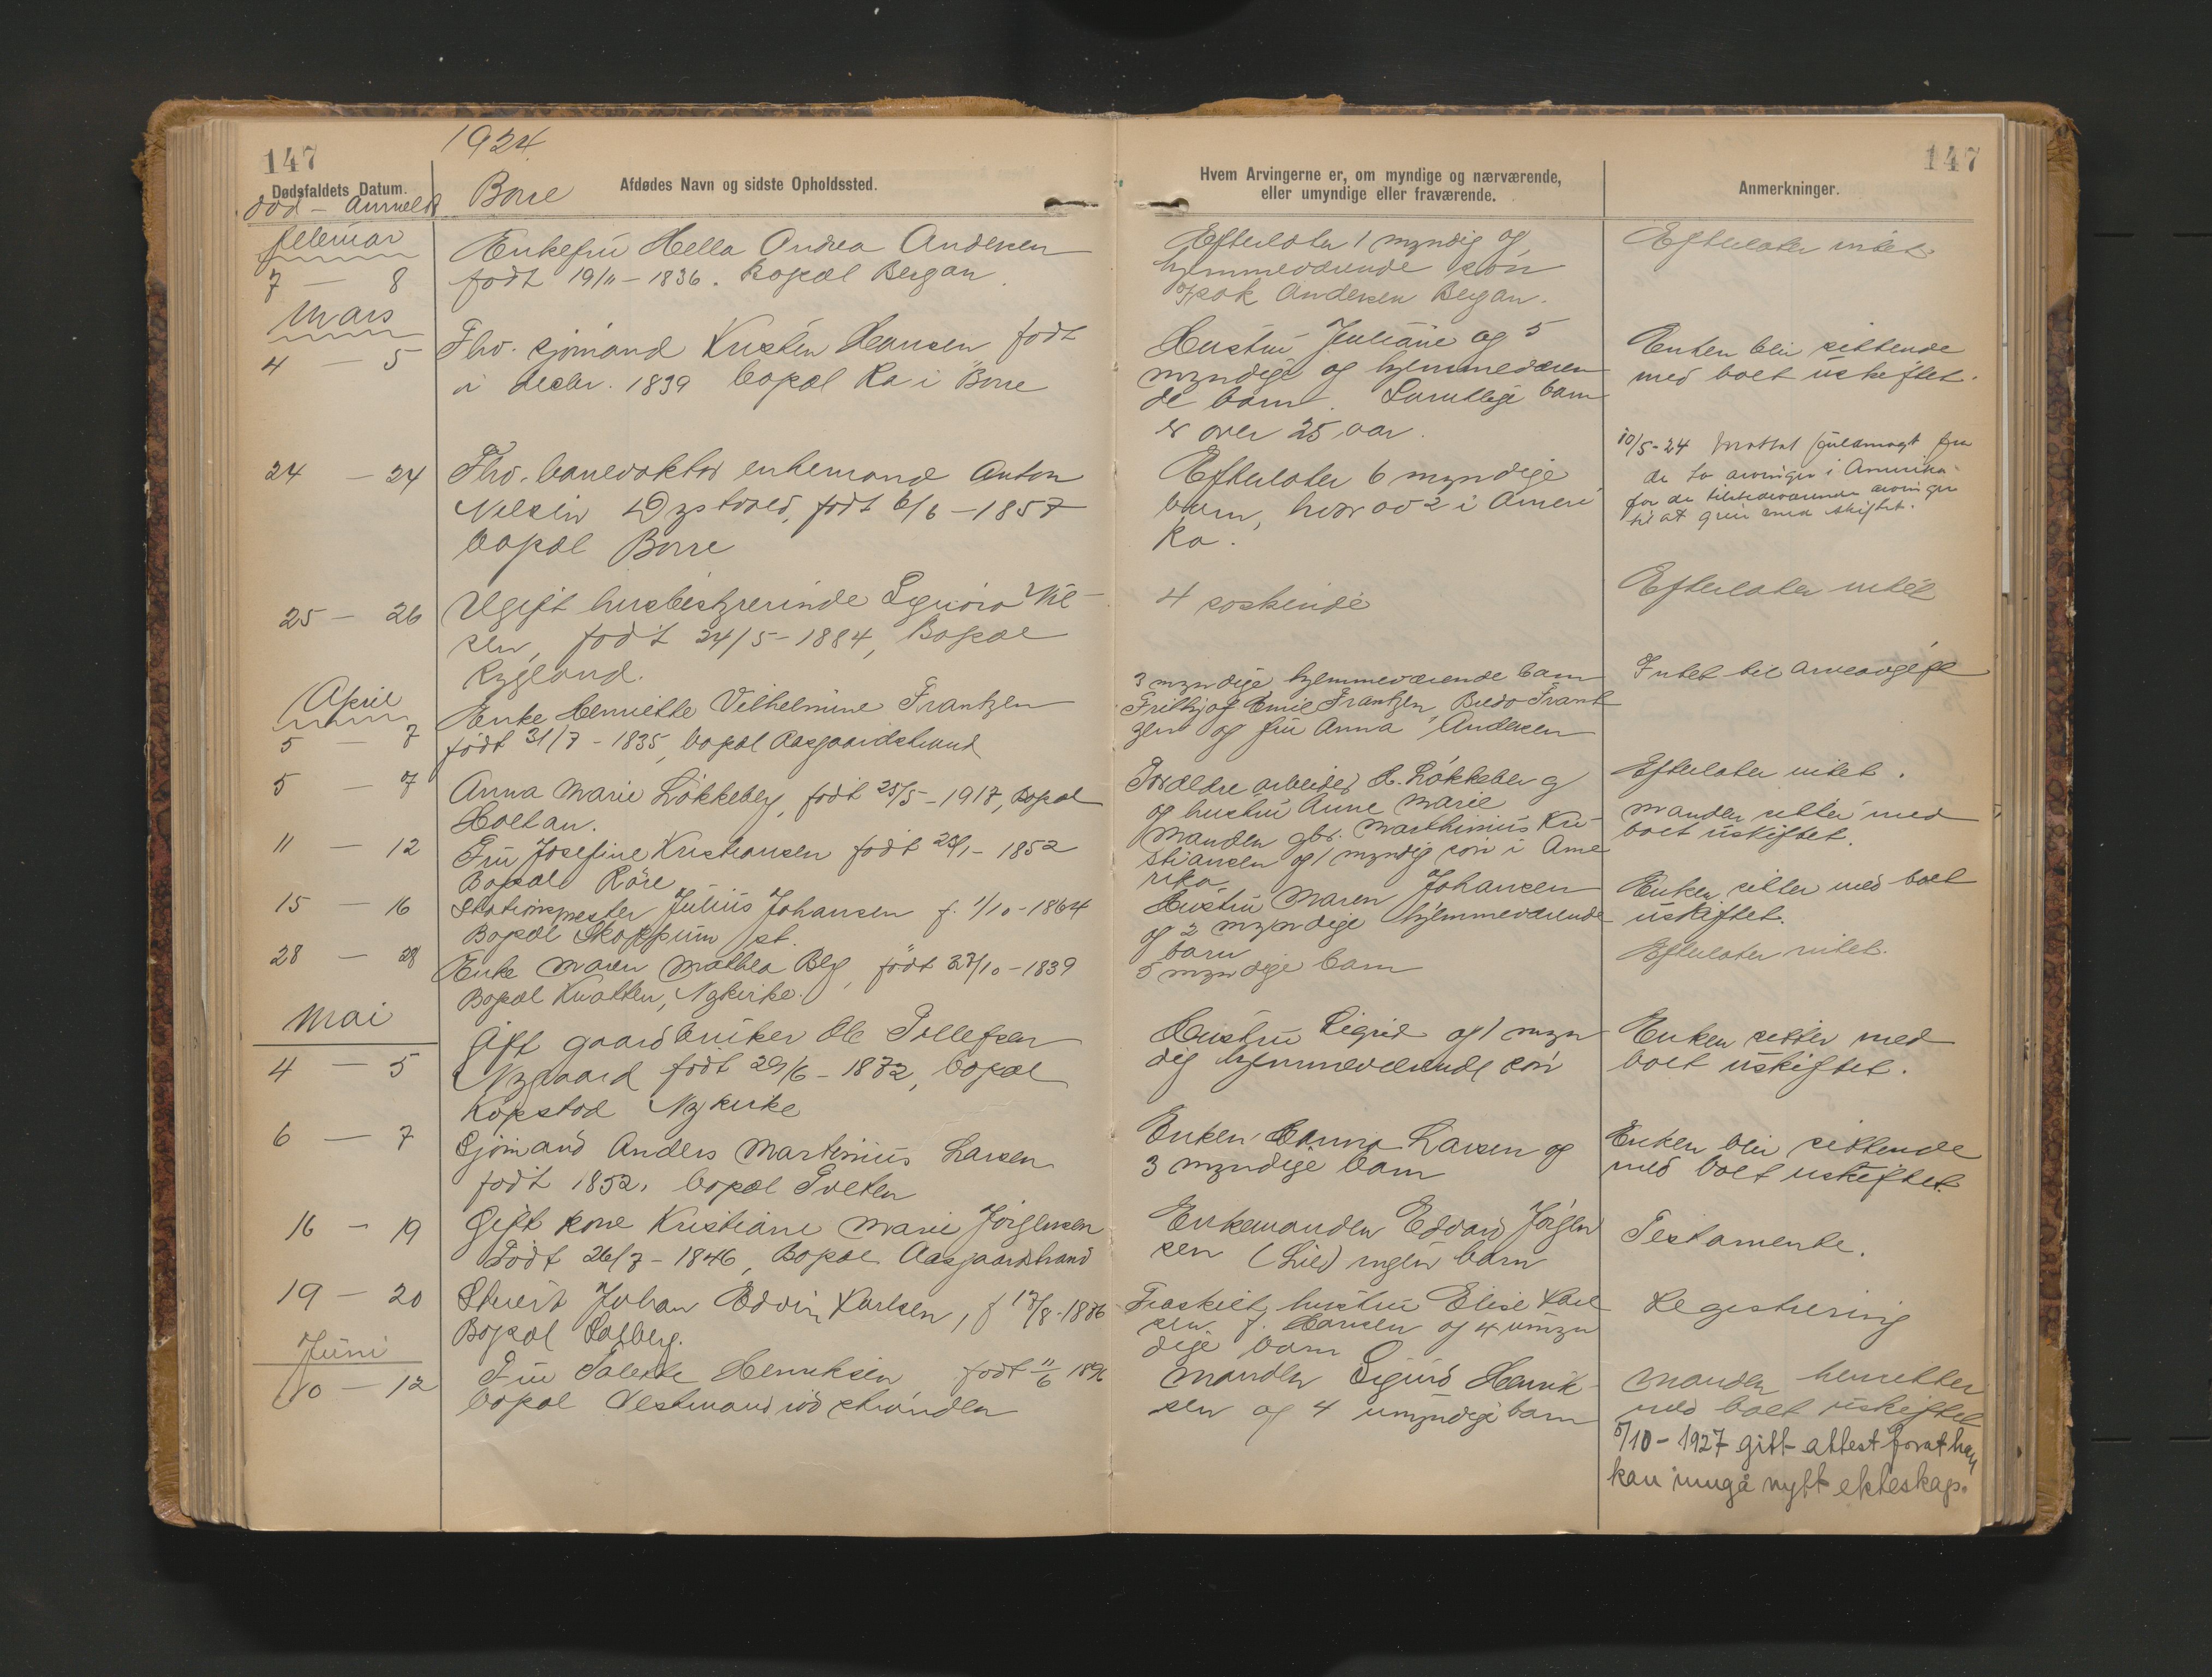 147
1924.
Dødsfaldets Datum.
Afdødes Navn og sidste Opholdssted.
Hvem Arvingerne er, om myndige og nærværende,
eller umyndige eller fraværende.
Anmerkninger.
147
død - Anmeldt
Borre
februar
7 — 8
Enkefru Hella Andrea Andersen
født 19/11 - 1836. Bopæl Bergan.
Efterlater 1 myndig og
hjemmeværende søn
Andersen Bergan.
Efterlater intet
Mars
4 — 5
Fhv. sjømand Kristen Hansen født
i decbr. 1839 bopæl Ra i Borre
Hustru Juliane og 5
myndige og hjemmeværen
de barn. Samtlige barn
er over 25 aar.
Enken blir sittende
med boet uskiftet.
24 — 24
Fhv. banevokter enkemand Anton
Nilsen, født 6/6 - 1857
bopæl Borre
Efterlater 6 myndige
barn, hvorav 2 i Ameri
ka.
10/5-24 Mottat fuldmagt fra
de to arvinger i Amerika
for de tilstedeværende arvinger
til at greie med skiftet.
25 — 26
Ugift husbestyrerinde Signora Nil-
sen, født 24/5 - 1884, Bopæl
Rygland.
4 søskende
Efterlater intet
April
5 — 7
Enke Henriette Vilhelmine Frantzen
født 31/7 - 1835, bopæl Aasgaardstrand
3 myndige hjemmeværende barn
Frithjof Emil Frantzen, Bredo Frant
zen og fru Anna Andersen
Intet til arveavgift
5 — 7
Anna Marie Løkkeberg, født 25/5 - 1917, Bopæl
Holtan.
Forældre arbeider H. Løkkeberg
og hustru Anne Marie
Efterlater intet.
11 — 12
Fru Josefine Kristiansen født 1852
Bopæl Røre
Manden gbr. Marthinius Kri-
stiansen og 1 myndig søn i Ame
rika
Manden sitter med
boet uskiftet.
15 — 16
Stationsmester Julius Johansen f. 1/10 - 1864
Bopæl Skoppum st.
Hustru Maren Johansen
og 2 myndige hjemmeværende
barn
Enken sitter med boet
uskiftet.
28 — 28
Enke Maren Mathea Berg, født 27/10 - 1839
Bopæl Knatten, Nykirke.
5 myndige barn
Efterlater intet.
Mai
4 — 5
Gift gaardbruker Ole Tollefsen
Nygaard født 29/6 - 1872, bopæl
Kopstad Nykirke
Hustru Sigrid og 1 myn
dig hjemmeværende søn
Enken sitter med
boet uskiftet.
6 — 7
Sjømand Anders Martinius Larsen
født 1852. bopæl Tveten
Enken Hanna Larsen og
3 myndige barn
Enken blir sittende
med boet uskiftet.
16 — 19
Gift kone Kristiane Marie Jørgensen
Født 26/7 - 1846, Bopæl Aasgaardstrand
Enkemanden Edvard Jørgen
sen (Lie) ingen barn
Testamente.
19 — 20
Stuert Johan Edvin Karlsen, f 17/8 - 1876
Bopæl Solberg.
Fraskilt hustru Elise Karl
sen f. Hansen og 4 umyn
dige barn
Registrering
Juni
10 — 12
Fru Valente Henriksen født 11/6 1896
bopæl Vestmandrødstranden
Manden Sigurd Henrik-
sen og 4 umyndige barn
Manden hensitter
med boet uskiftet
5/10 - 1927 gitt attest for at han
kan inngå nytt ekteskap.